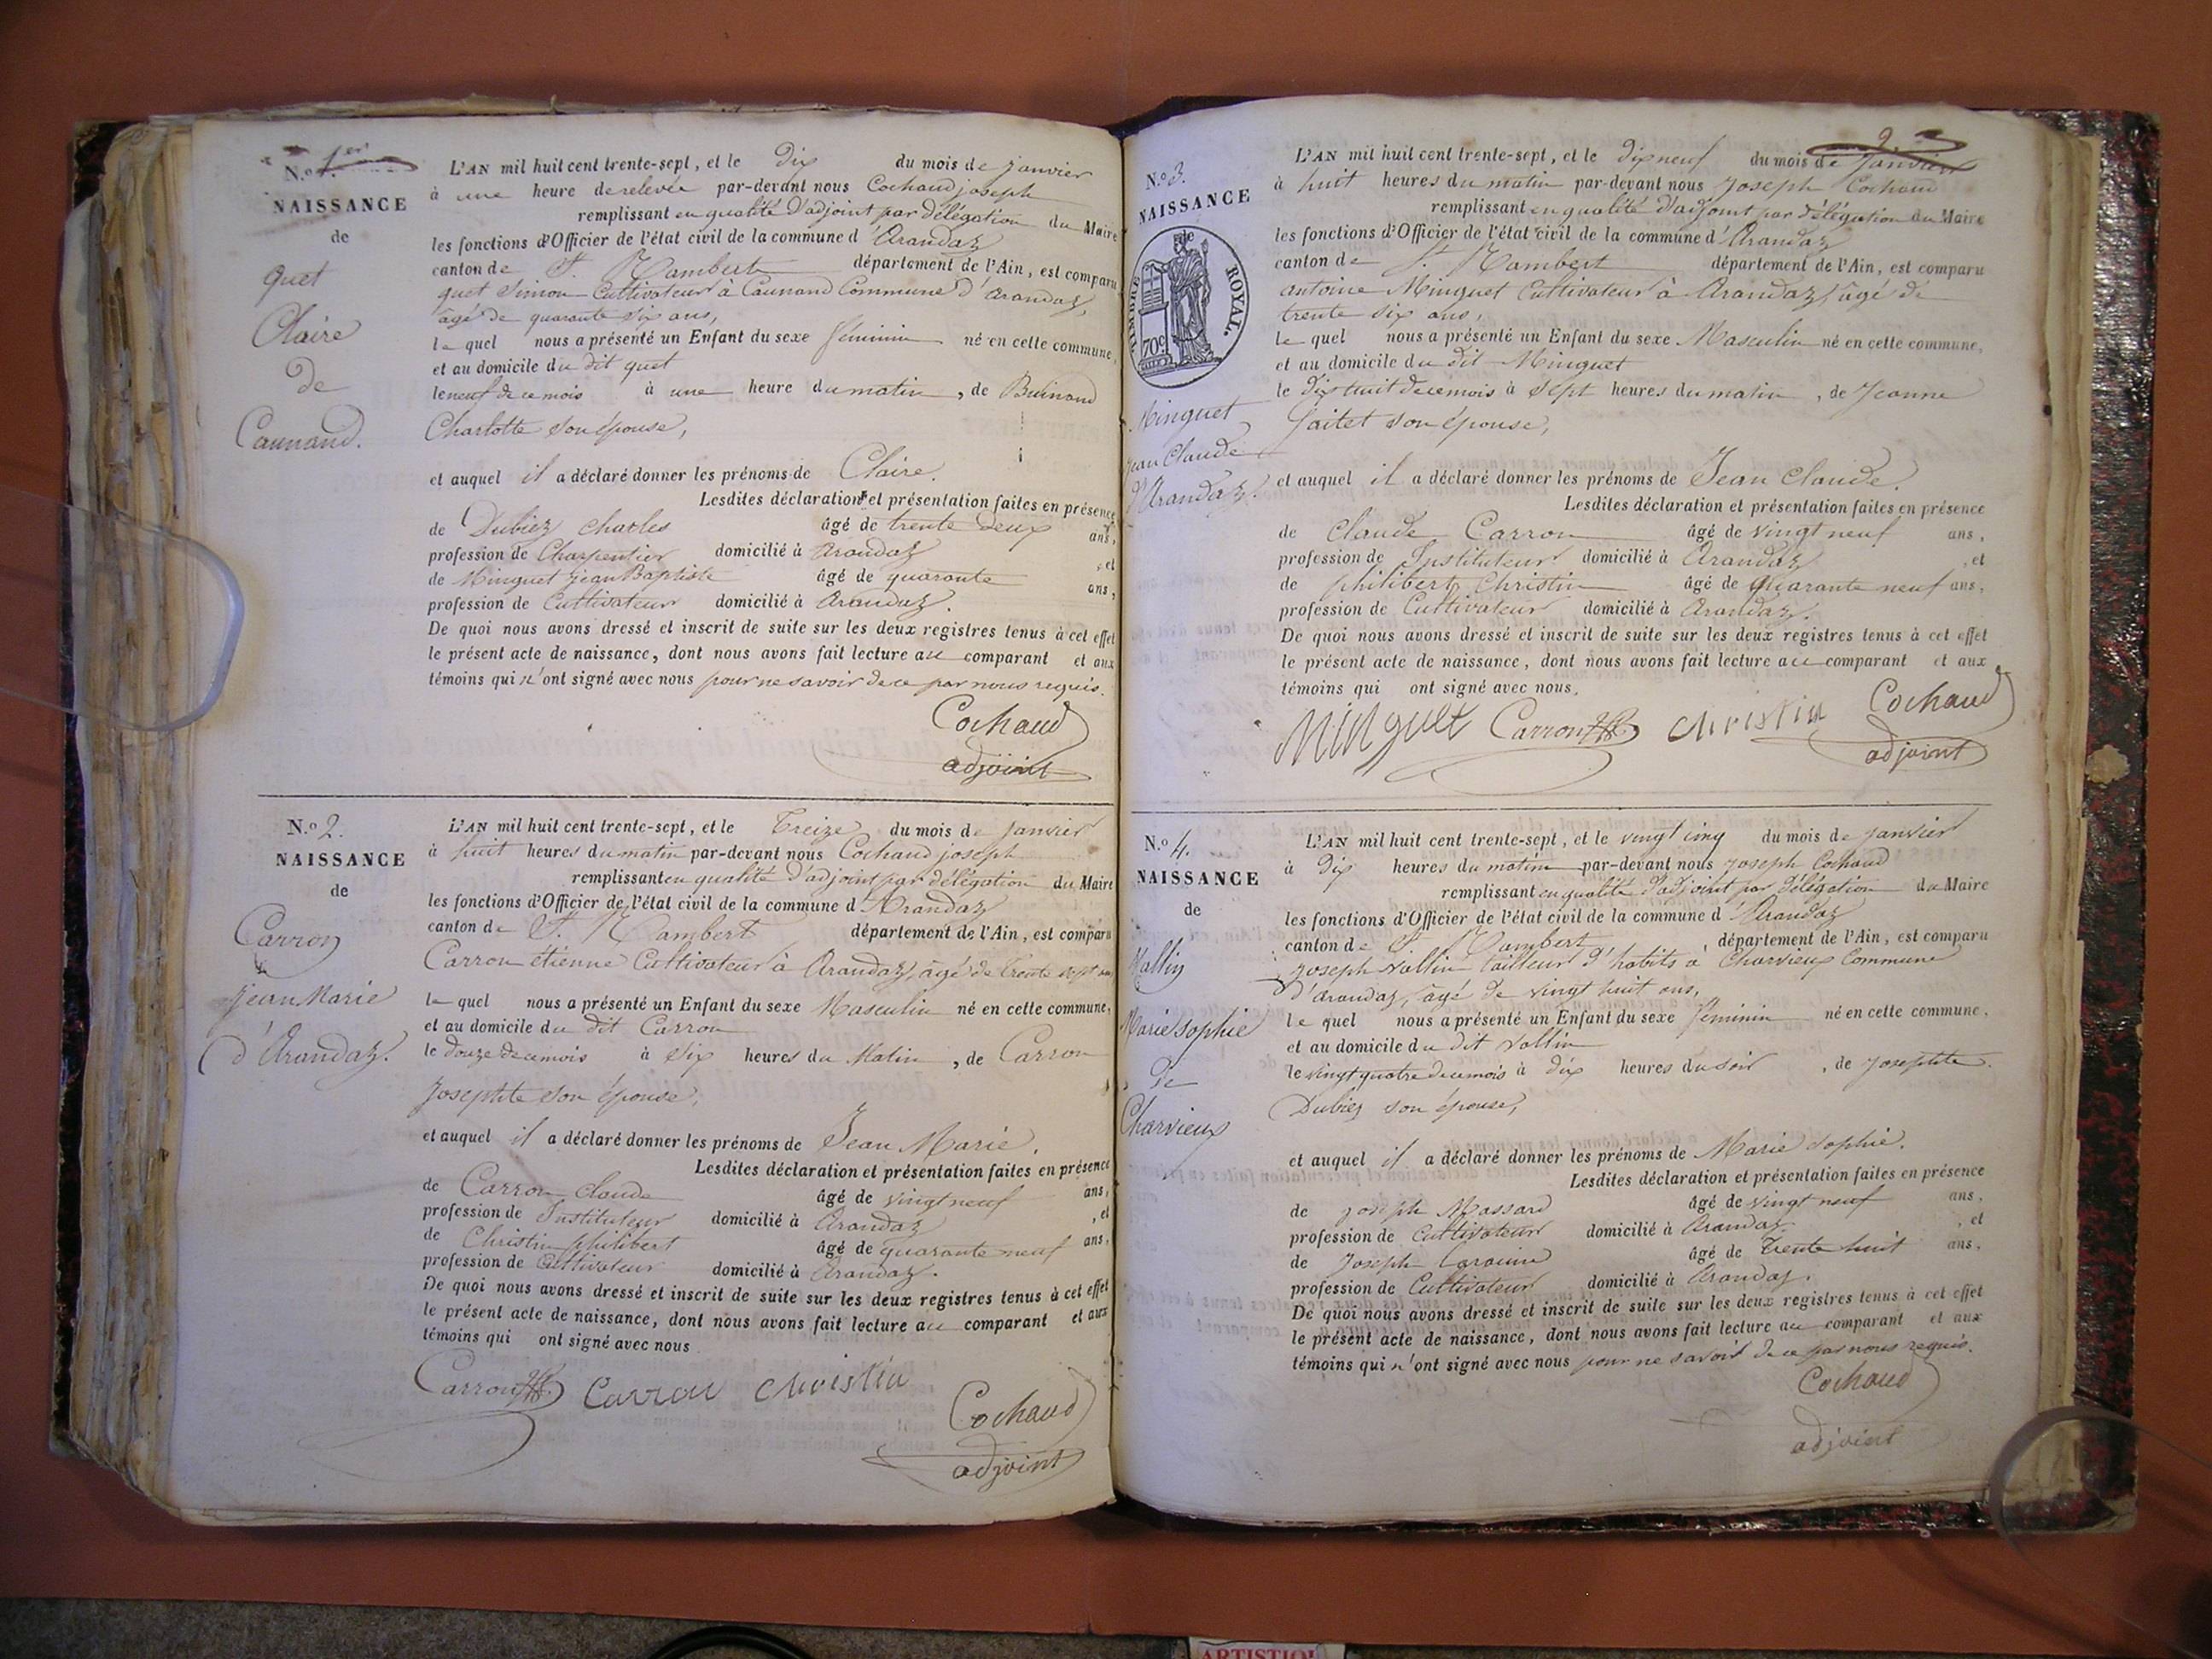 N.º 1.er
NAISSANCE
de
quet
Claire
de
Caunand.
L'AN mil huit cent trente-sept, et le dix du mois de janvier
à une heure de relevée par-devant nous Cochaud joseph
remplissant en qualité d'adjoint par délégation du Maire
les fonctions d'Officier de l'état civil de la commune d'Arandaz
canton de St. Rambert département de l'Ain, est comparu
quet Simon Cultivateur à Caunand Commune d'Arandaz,
âgé de quarante six ans,
le quel nous a présenté un Enfant du sexe féminin né en cette commune,
et au domicile du dit quet
le neuf de ce mois à une heure du matin, de Buinand
Charlotte son épouse,
et auquel il a déclaré donner les prénoms de Claire.
Lesdites déclaration et présentation faites en présence
de Dubiez charles âgé de trente deux ans,
profession de Charpentier domicilié à Arandaz, et
de Minguet jean Baptiste âgé de quarante ans,
profession de Cultivateur domicilié à Arandaz.
De quoi nous avons dressé et inscrit de suite sur les deux registres tenus à cet effet
le présent acte de naissance, dont nous avons fait lecture au comparant et aux
témoins qui n'ont signé avec nous pour ne savoir de ce par nous requis.
Cochaud
adjoint
N.º 2.
NAISSANCE
de
Carron
Jean Marie
d'Arandaz.
L'AN mil huit cent trente-sept, et le Treize du mois de janvier
à huit heures du matin par-devant nous Cochaud joseph
remplissant en qualité d'adjoint par délégation du Maire
les fonctions d'Officier de l'état civil de la commune d'Arandaz
canton de St. Rambert département de l'Ain, est comparu
Carron étienne Cultivateur à Arandaz, âgé de trente sept ans
le quel nous a présenté un Enfant du sexe Masculin né en cette commune,
et au domicile du dit Carron
le douze de ce mois à six heures du Matin, de Carron
Josephte son épouse,
et auquel il a déclaré donner les prénoms de Jean Marie.
Lesdites déclaration et présentation faites en présence
de Carron claude âgé de vingt neuf ans,
profession de Instituteur domicilié à Arandaz, et
de Christin philibert âgé de quarante neuf ans,
profession de Cultivateur domicilié à Arandaz.
De quoi nous avons dressé et inscrit de suite sur les deux registres tenus à cet effet
le présent acte de naissance, dont nous avons fait lecture au comparant et aux
témoins qui ont signé avec nous
Carron Carron christin Cochaud
adjoint
2
N.º 3.
NAISSANCE
de
TIMBRE ROYAL.
70c
Minguet
jean Claude
d'Arandaz.
L'AN mil huit cent trente-sept, et le dix neuf du mois de Janvier
à huit heures du matin par-devant nous Joseph Cochaud
remplissant en qualité d'adjoint par délégation du Maire
les fonctions d'Officier de l'état civil de la commune d'Arandaz
canton de St. Rambert département de l'Ain, est comparu
antoine Minguet Cultivateur à Arandaz, âgé de
trente six ans,
le quel nous a présenté un Enfant du sexe Masculin né en cette commune,
et au domicile du dit Minguet
le dix huit de ce mois à sept heures du matin, de Jeanne
faitet son épouse,
et auquel il a déclaré donner les prénoms de Jean Claude.
Lesdites déclaration et présentation faites en présence
de Claude Carron âgé de vingt neuf ans,
profession de Instituteur domicilié à Arandaz, et
de philibert Christin âgé de quarante neuf ans,
profession de Cultivateur domicilié à Arandaz.
De quoi nous avons dressé et inscrit de suite sur les deux registres tenus à cet effet
le présent acte de naissance, dont nous avons fait lecture au comparant et aux
témoins qui ont signé avec nous.
Minguet Carron christin Cochaud
adjoint
N.º 4.
NAISSANCE
de
Vallin
Marie sophie
de
Charvieux
L'AN mil huit cent trente-sept, et le vingt cinq du mois de janvier
à dix heures du matin par-devant nous Joseph Cochaud
remplissant en qualité d'adjoint par délégation du Maire
les fonctions d'Officier de l'état civil de la commune d'Arandaz
canton de St. Rambert, département de l'Ain, est comparu
Joseph Vallin tailleur d'habits à Charvieux Commune
d'arandaz, âgé de vingt huit ans,
le quel nous a présenté un Enfant du sexe féminin né en cette commune,
et au domicile du dit Vallin
le vingt quatre de ce mois à dix heures du soir, de Josephte
Dubiez son épouse,
et auquel il a déclaré donner les prénoms de Marie Sophie.
Lesdites déclaration et présentation faites en présence
de joseph Massard âgé de vingt neuf ans,
profession de Cultivateur domicilié à Arandaz, et
de Joseph âgé de Trente huit ans,
profession de Cultivateur domicilié à Arandaz.
De quoi nous avons dressé et inscrit de suite sur les deux registres tenus à cet effet
le présent acte de naissance, dont nous avons fait lecture au comparant et aux
témoins qui n'ont signé avec nous pour ne savoir de ce par nous requis.
Cochaud
adjoint